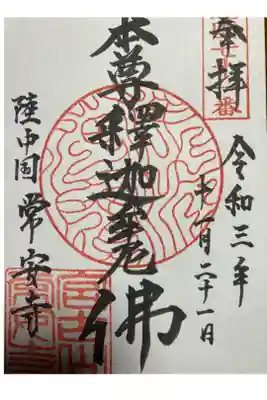 奉拝
令和三年
十一月二十一日
本尊釋迦牟尼佛
陸中国 常安寺